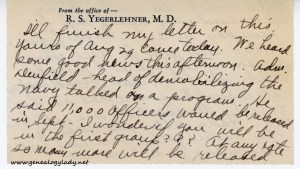 From the office of
R. S. YEGERLEHNER, M. D.
I'll finish my letter on this.
Yours of Aug 29 came today. We heard
some good news this afternoon. Adm.
Denfield - head of demobilizing the
Navy talked on a program. He
said 11,000 officers would be released
in Sept - I wonder if you will be
in the first group?? At any rate
so many more will be released
www.genealogylady.net